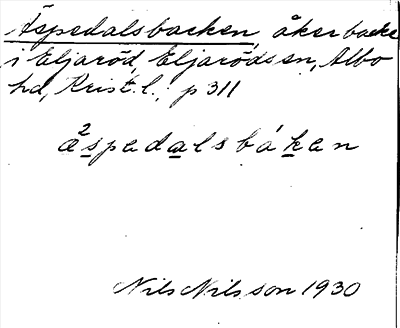 Äspedalsbacken, åkerbacke
i Eljaröd, Eljaröds sn, Albo
hd, Krist. l., p 311
²äspedalsbáken
Nils Nilsson 1930